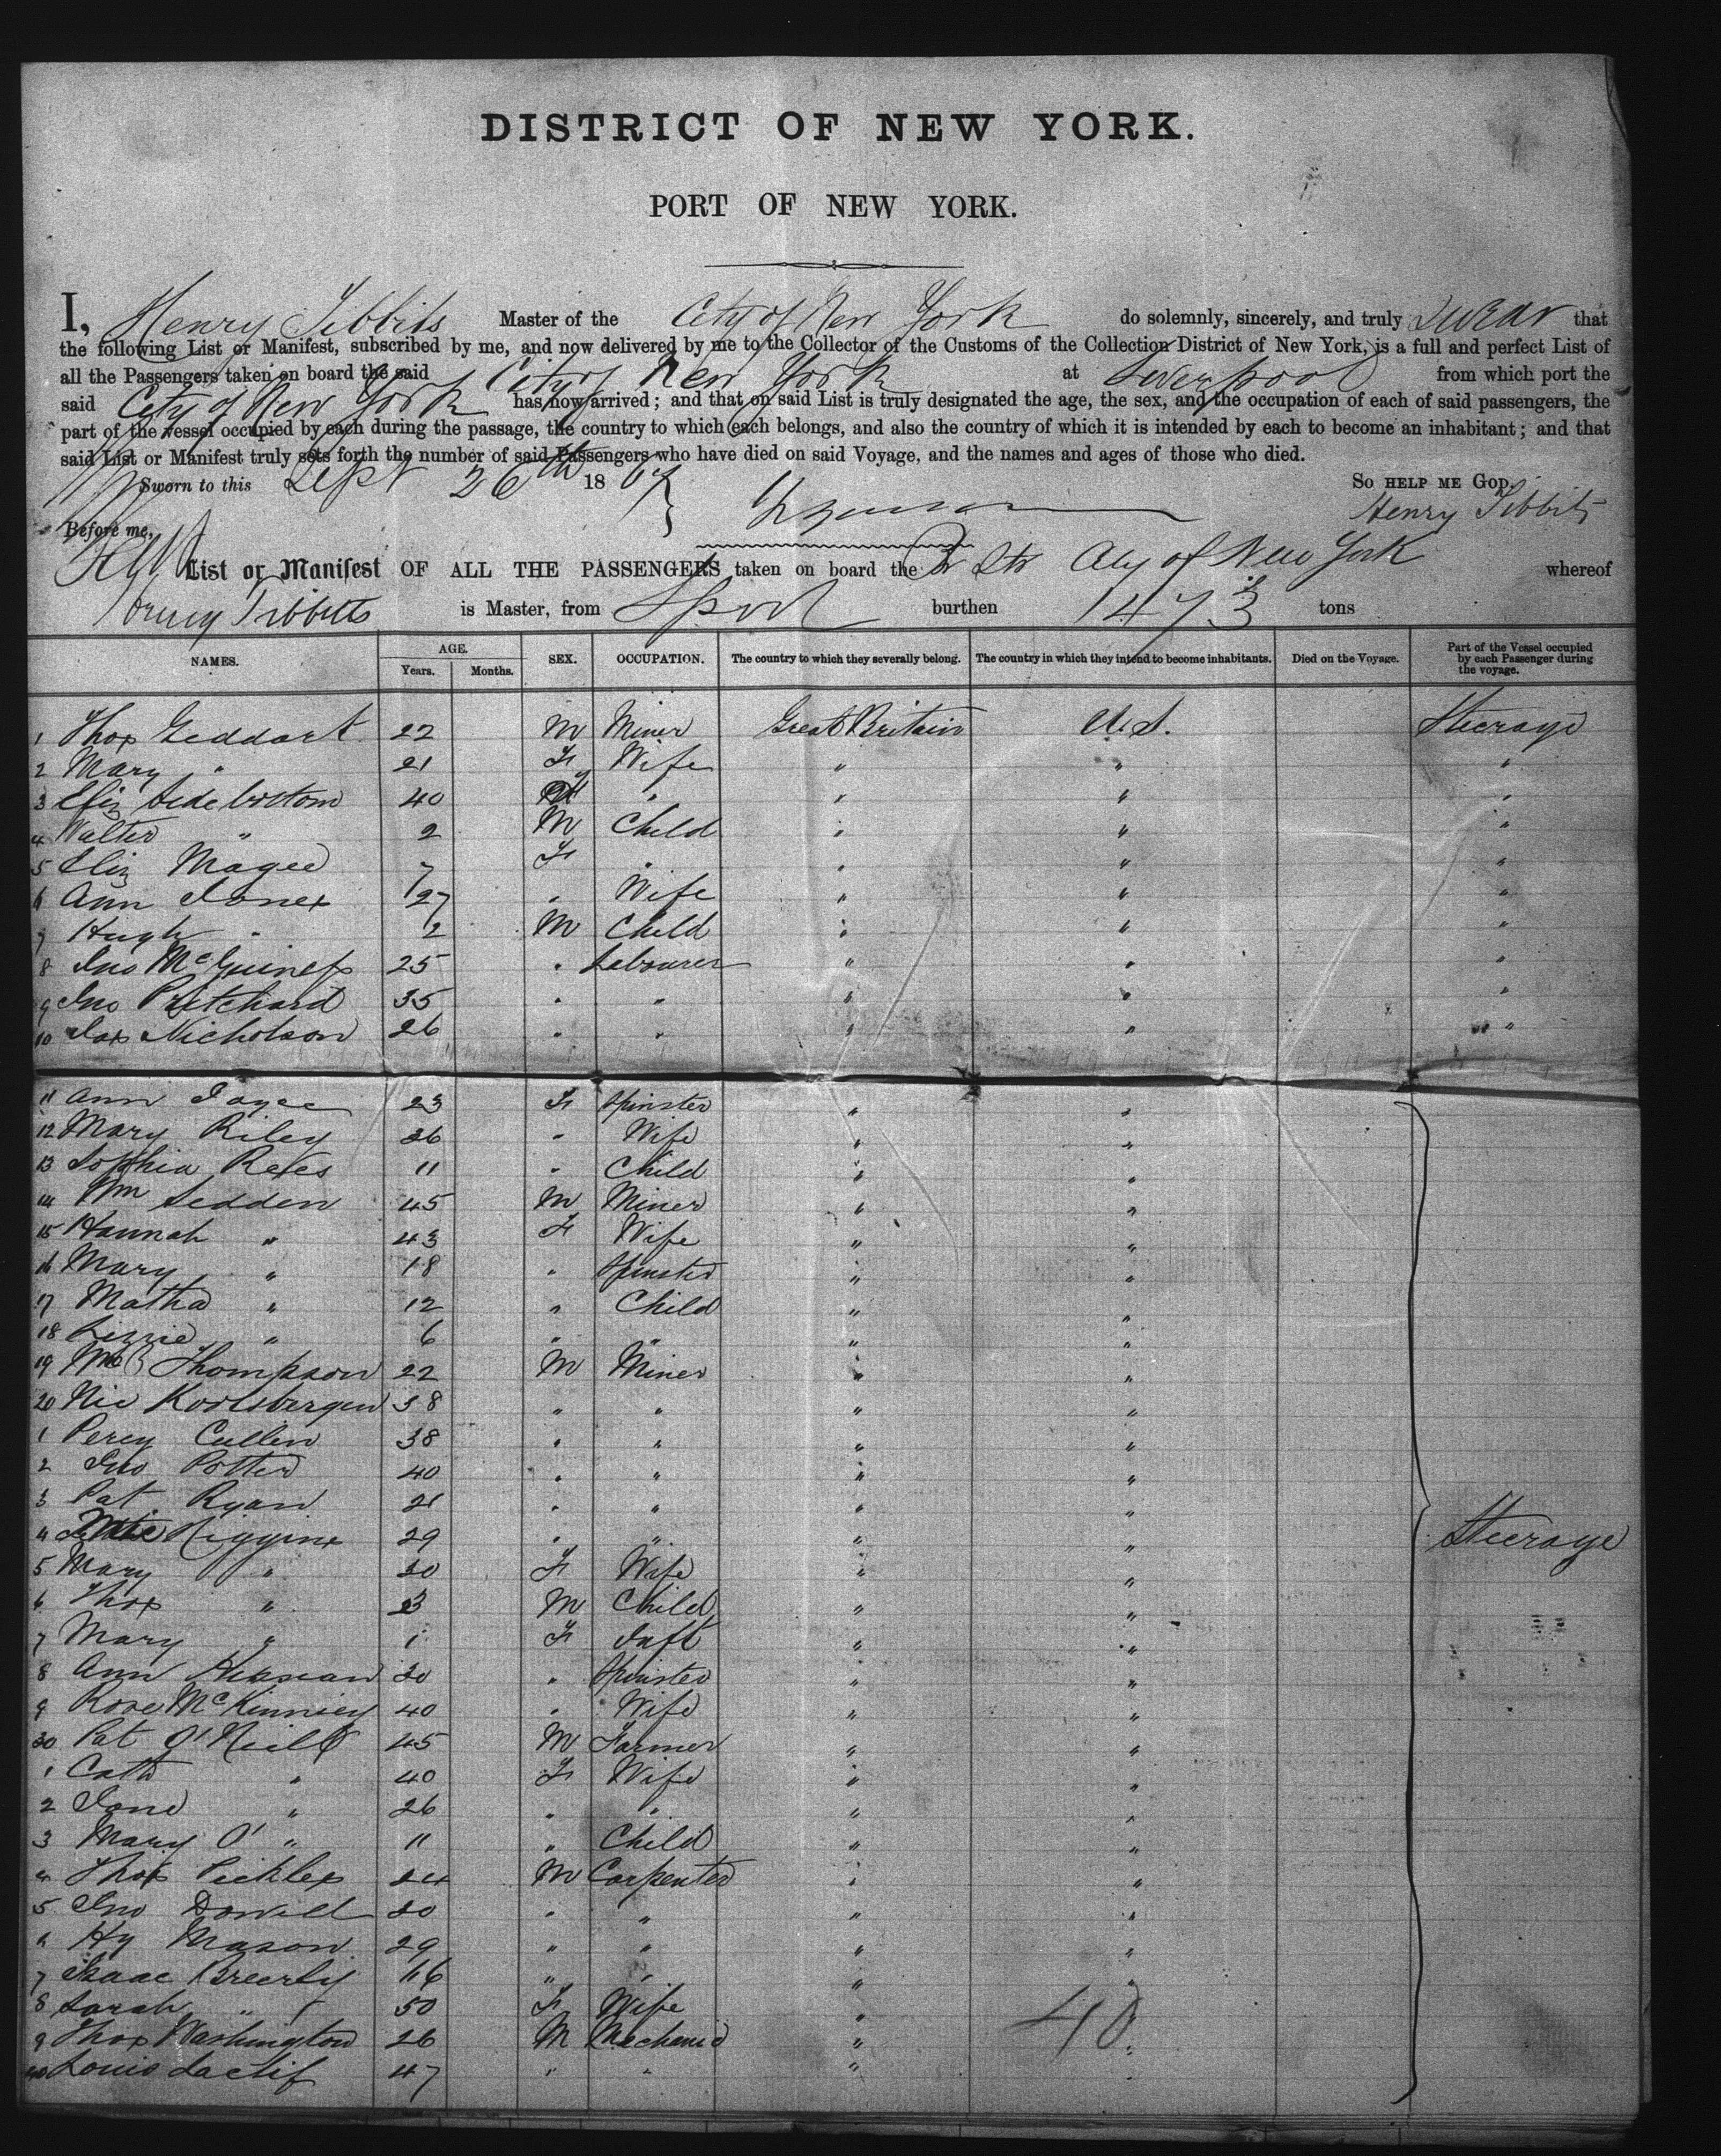 DISTRICT OF NEW YORK.
PORT OF NEW YORK.
I, Henry Tibbits Master of the City of New York do solemnly, sincerely, and truly swear that
the following List or Manifest, subscribed by me, and now delivered by me to the Collector of the Customs of the Collection District of New York, is a full and perfect List of
all the Passengers taken on board the said City of New York at Liverpool from which port the
said City of New York has now arrived; and that on said List is truly designated the age, the sex, and the occupation of each of said passengers, the
part of the vessel occupied by each during the passage, the country to which each belongs, and also the country of which it is intended by each to become an inhabitant; and that
said List or Manifest truly sets forth the number of said Passengers who have died on said Voyage, and the names and ages of those who died.
Sworn to this Sept 26th 1867 So HELP ME GOD.
Henry Tibbits
Before me,
List or Manifest OF ALL THE PASSENGERS taken on board the Br Str City of New York whereof
Henry Tibbitts is Master, from Lpool burthen 1473 tons
NAMES. AGE. Years. Months. SEX. OCCUPATION. The country to which they severally belong. The country in which they intend to become inhabitants. Died on the Voyage. Part of the Vessel occupied by each Passenger during the voyage.
1 Thos Geddart 22 M Miner Great Britain U.S. Steerage
2 Mary " 21 F Wife " " "
3 Eliz Sidebottom 40 " " " "
4 Walter " 2 M Child " " "
5 Eliz Magee 7 F " " " "
6 Ann Jones 27 " Wife " " "
7 Hugh " 2 M Child " " "
8 Jno McGuiness 25 " Labourer " " "
9 Jno Pritchard 35 " " " " "
10 Jas Nicholson 26 " " " " "
11 Ann Joyce 23 F Spinster " "
12 Mary Riley 26 " Wife " "
13 Sophia 11 " Child " "
14 Wm Sedden 45 M Miner " "
15 Hannah " 43 F Wife " "
16 Mary " 18 " Spinster " "
17 Matha " 12 " Child " "
18 Lizzie " 6 " " " "
19 Thompson 22 M Miner " "
20 Nic Koolsbergen 38 " " " "
1 Percy Cullen 38 " " " "
2 Jno Potter 40 " " " "
3 Pat Ryan 21 " " " "
4 Higgins 29 " " " " Steerage
5 Mary " 30 F Wife " "
6 Thos " 3 M Child " "
7 Mary " 1 F Inft " "
8 Ann 30 " Spinster " "
9 Rose McKinney 40 " Wife " "
30 Pat O'Neill 45 M Farmer " "
1 Cath " 40 F Wife " "
2 Jane " 26 " " " "
3 Mary O' " 11 " Child " "
4 Thos Pickles 24 M Carpenter " "
5 Jno Dowell 20 " " " "
6 Hy Mason 29 " " " "
7 Isaac Breerly 46 " " " "
8 Sarah " 50 F Wife " "
9 Thos Washington 26 M Mechanic " "
40 Louis Laclif 47 " " " "
40